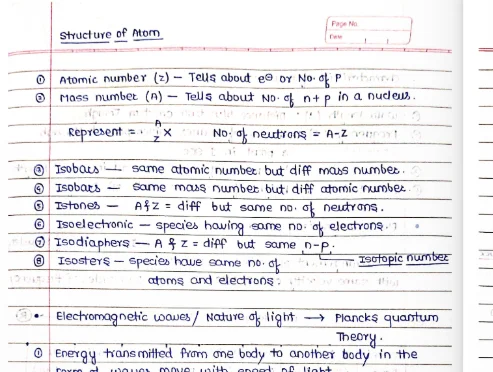 Page No.
Date
Structure of Atom
① Atomic number (z) — Tells about e⊖ or No. of P
② Mass number (A) — Tells about No. of n+p in a nucleus.
Represent = A Z X No. of neutrons = A-Z
③ Isobars — same atomic number but diff mass number.
④ Isobars — same mass number but diff atomic number.
⑤ Istones — A & Z = diff but same no. of neutrons.
⑥ Isoelectronic — species having same no. of electrons.
⑦ Isodiaphers — A & Z = diff but same n-p.
Isotopic number
⑧ Isosters — species have same no. of
atoms and electrons.
Electromagnetic waves / Nature of light → Plancks quantum
Theory.
① Energy transmitted from one body to another body in the
form of waves move with speed of light